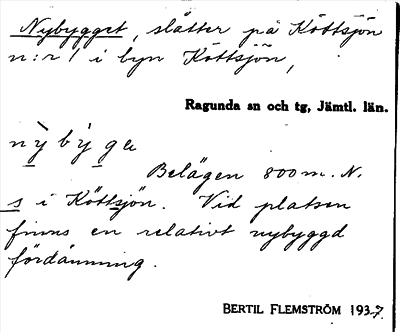 Nybygget, slåtter på Köttsjön
n:r 1 i byn Köttsjön,
Ragunda sn och tg, Jämtl. län.
nỳbỳga
Belägen 800 m. N.
s i Köttsjön. Vid platsen
finns en relativt nybyggd
fördämning.
BERTIL FLEMSTRÖM 1937.